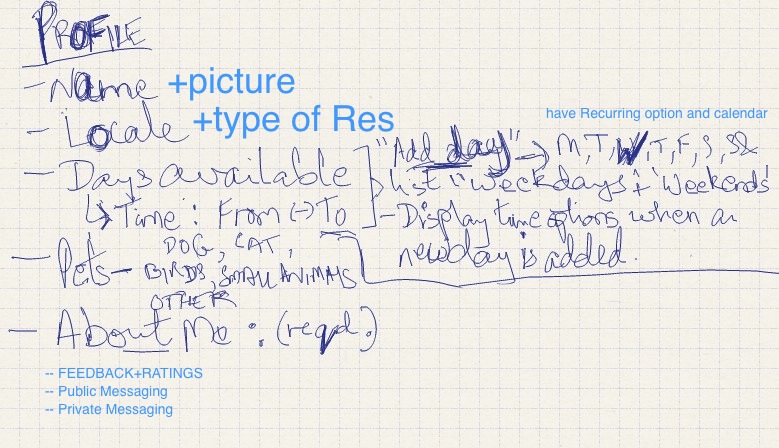 PROFILE
- Name +picture
- Locale +type of Res
have Recurring option and calendar
- Days available
↳ Time: From (-) To
"Add day" → M, T, W, T, F, S, S
List "Weekdays" + "Weekends"
- Display time options when a
new day is added.
- Pets - DOG, CAT,
BIRDS, SMALL ANIMALS
OTHER
- About Me : (reqd.)
-- FEEDBACK+RATINGS
-- Public Messaging
-- Private Messaging